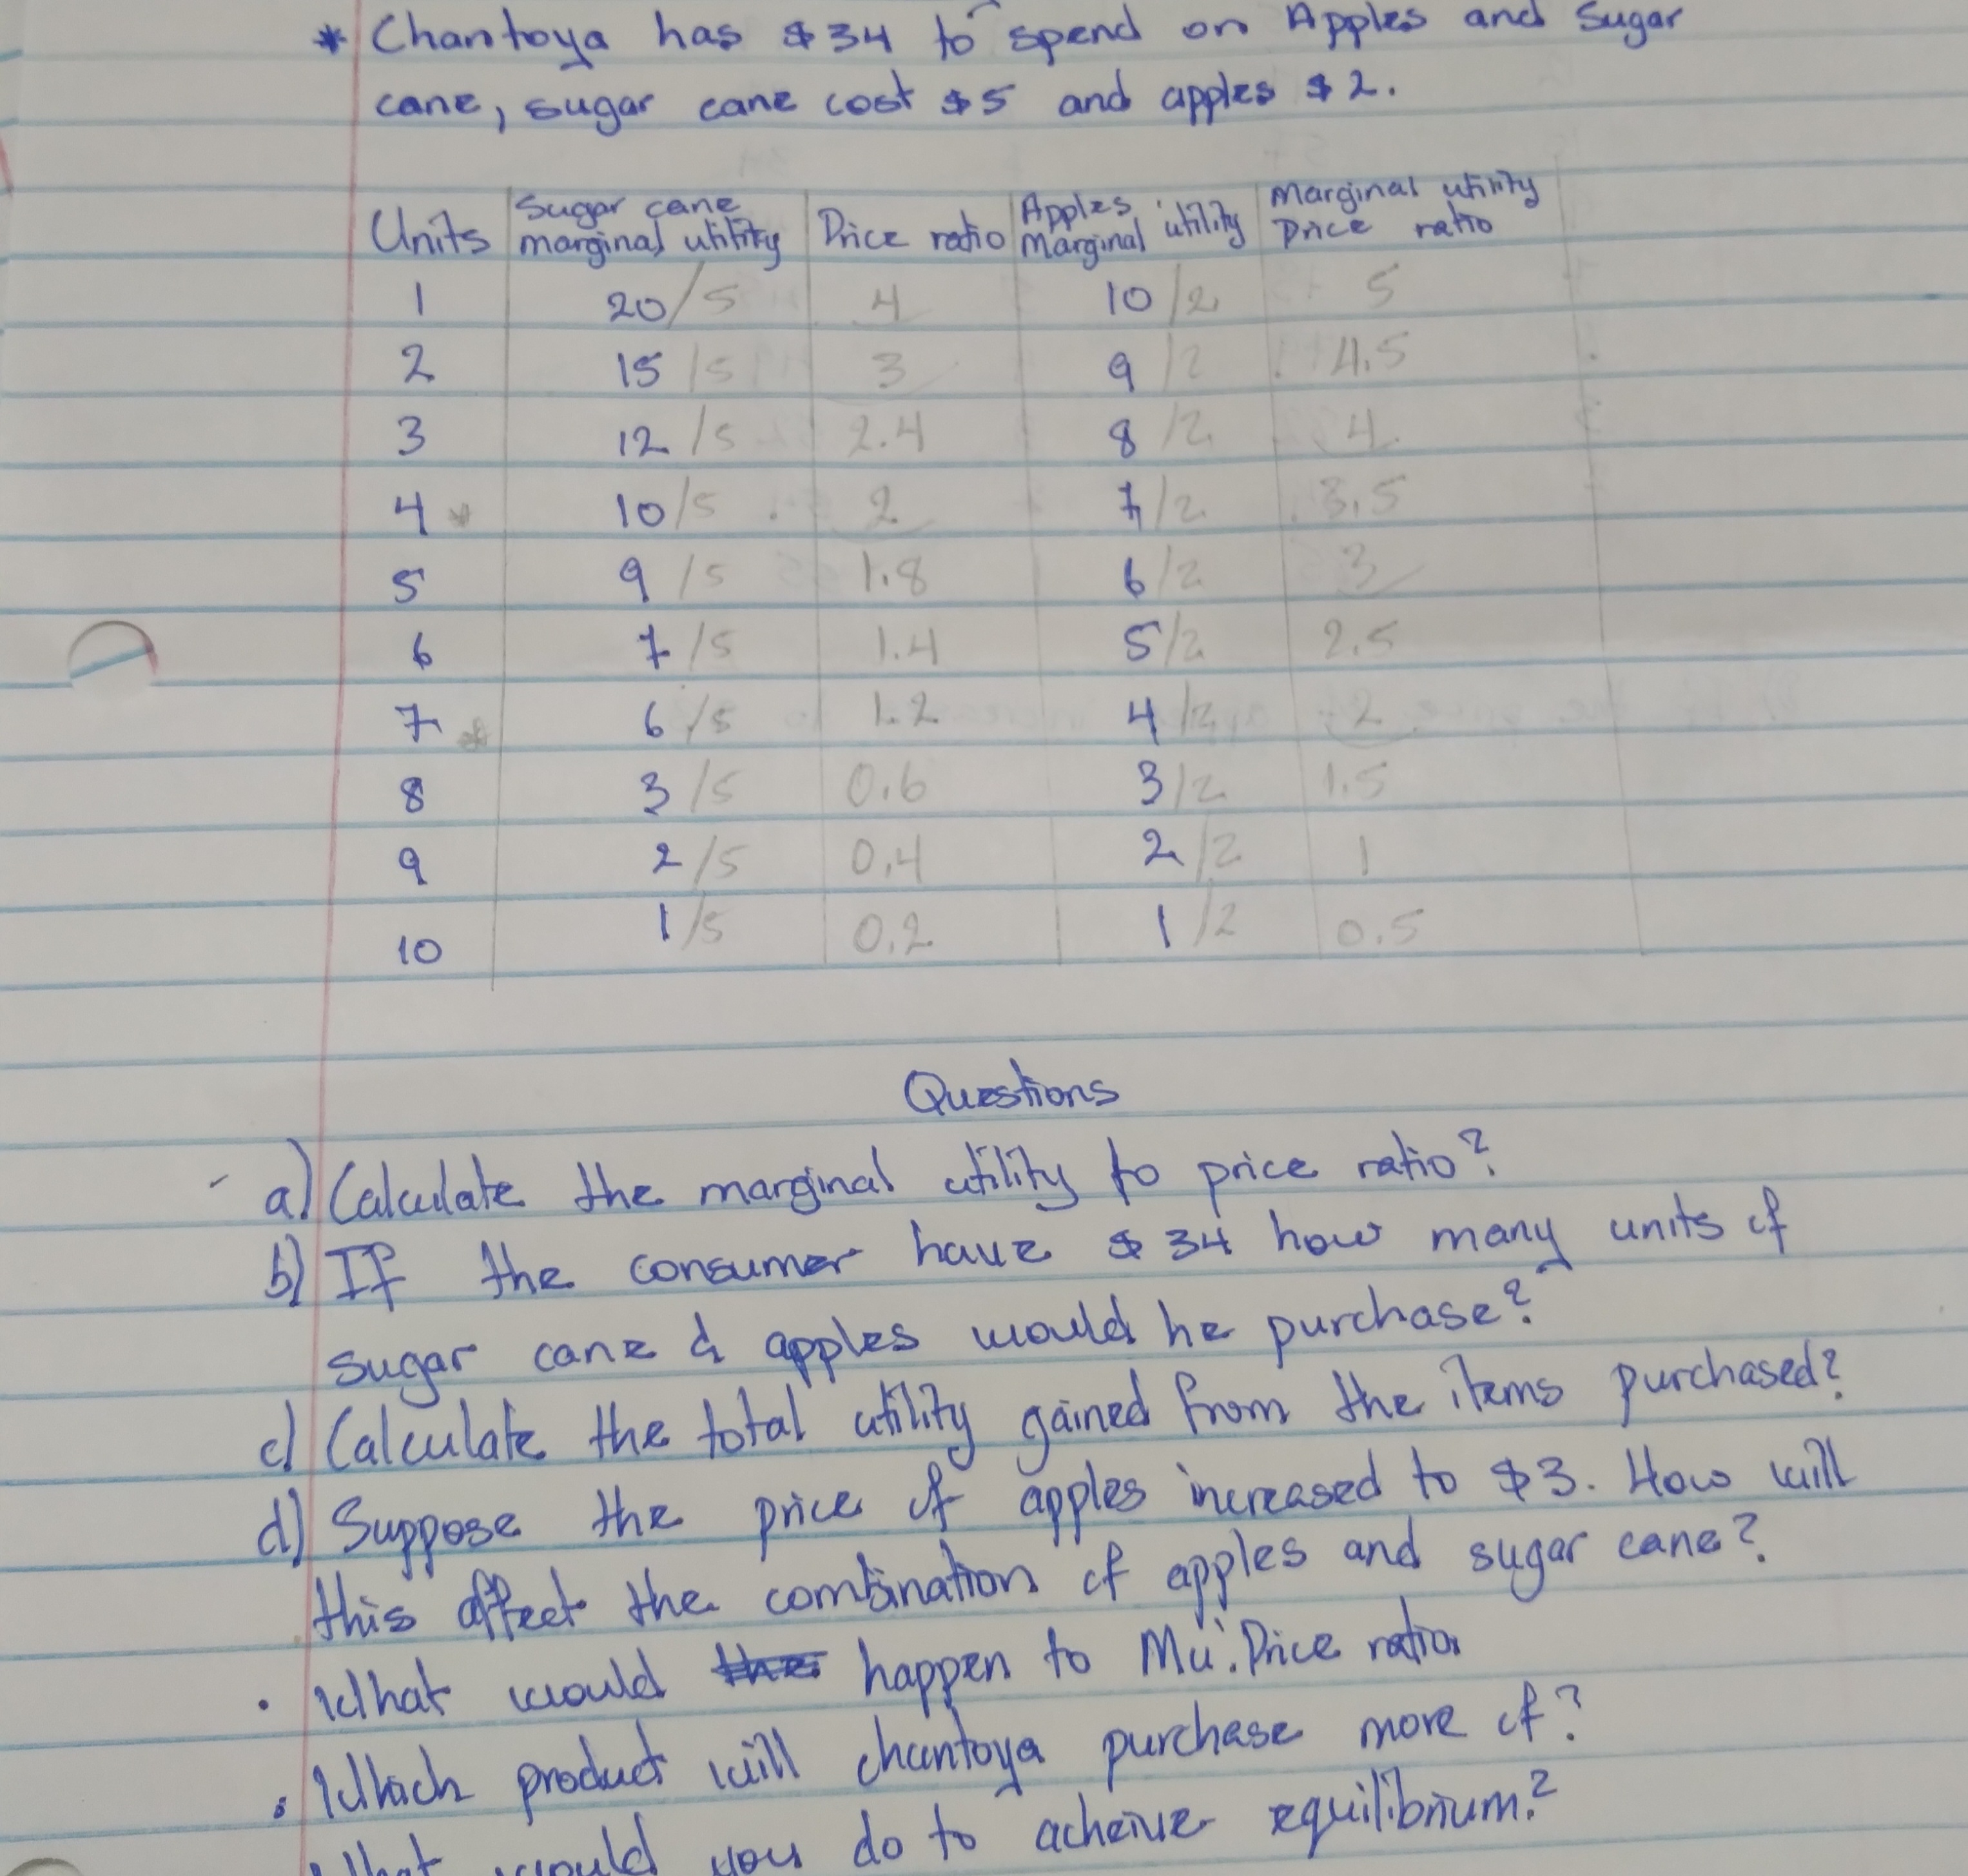 * Chantoya has $34 to spend on Apples and Sugar
cane, sugar cane cost $5 and apples $2.
Units | Sugar cane marginal utility | Price ratio | Apples Marginal utility | Marginal utility Price ratio
1 20/5 4 10/2 5
2 15/5 3 9/2 4.5
3 12/5 2.4 8/2 4
4 * 10/5 2 7/2 3.5
5 9/5 1.8 6/2 3
6 7/5 1.4 5/2 2.5
7 * 6/5 1.2 4/2 2
8 3/5 0.6 3/2 1.5
9 2/5 0.4 2/2 1
10 1/5 0.2 1/2 0.5
Questions
a) Calculate the marginal utility to price ratio?
b) If the consumer have $34 how many units of
sugar cane & apples would he purchase?
c) Calculate the total utility gained from the items purchased?
d) Suppose the price of apples increased to $3. How will
this affect the combination of apples and sugar cane?
. What would happen to Mu: Price ratio
. Which product will chantoya purchase more of?
What would you do to acheive equilibrium?